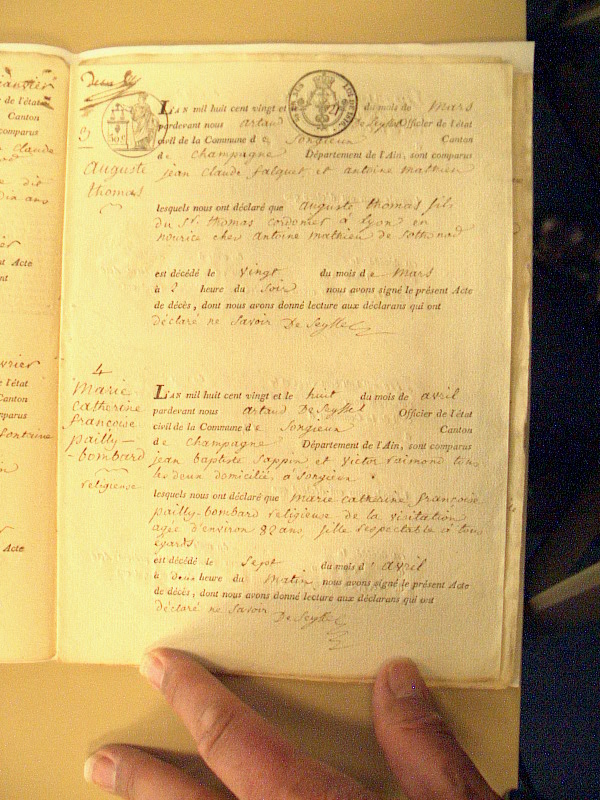 3
Auguste
thomas
L'AN mil huit cent vingt et le 21 du mois de Mars
pardevant nous artaud De Seyssel Officier de l'état
civil de la Commune d e Songieux Canton
de champagne Département de l'Ain, sont comparus
jean claude falquet et antoine mathieu
lesquels nous ont déclaré que auguste thomas fils
du Sr. thomas cordonier à lyon en
nourice chez antoine mathieu de Sothonod
est décédé le vingt du mois d e Mars
à 2 heure du Soir nous avons signé le présent Acte
de décès, dont nous avons donné lecture aux déclarans qui ont
déclaré ne Savoir De Seyssel
4
Marie
Catherine
françoise
pailly-
-bombard
religieuse
L'AN mil huit cent vingt et le huit du mois de avril
pardevant nous artaud De Seyssel Officier de l'état
civil de la Commune d e Songieux Canton
de champagne Département de l'Ain, sont comparus
jean baptiste Sappin et victor raimond tous
les deux domiciliés à Songieux
lesquels nous ont déclaré que marie catherine françoise
pailly-bombard religieuse de la visitation
agée d'environ 82 ans, fille respectable à tous
egards
est décédé le Sept du mois d' avril
à deux heure du Matin nous avons signé le présent Acte
de décès, dont nous avons donné lecture aux déclarans qui ont
déclaré ne Savoir De Seyssel